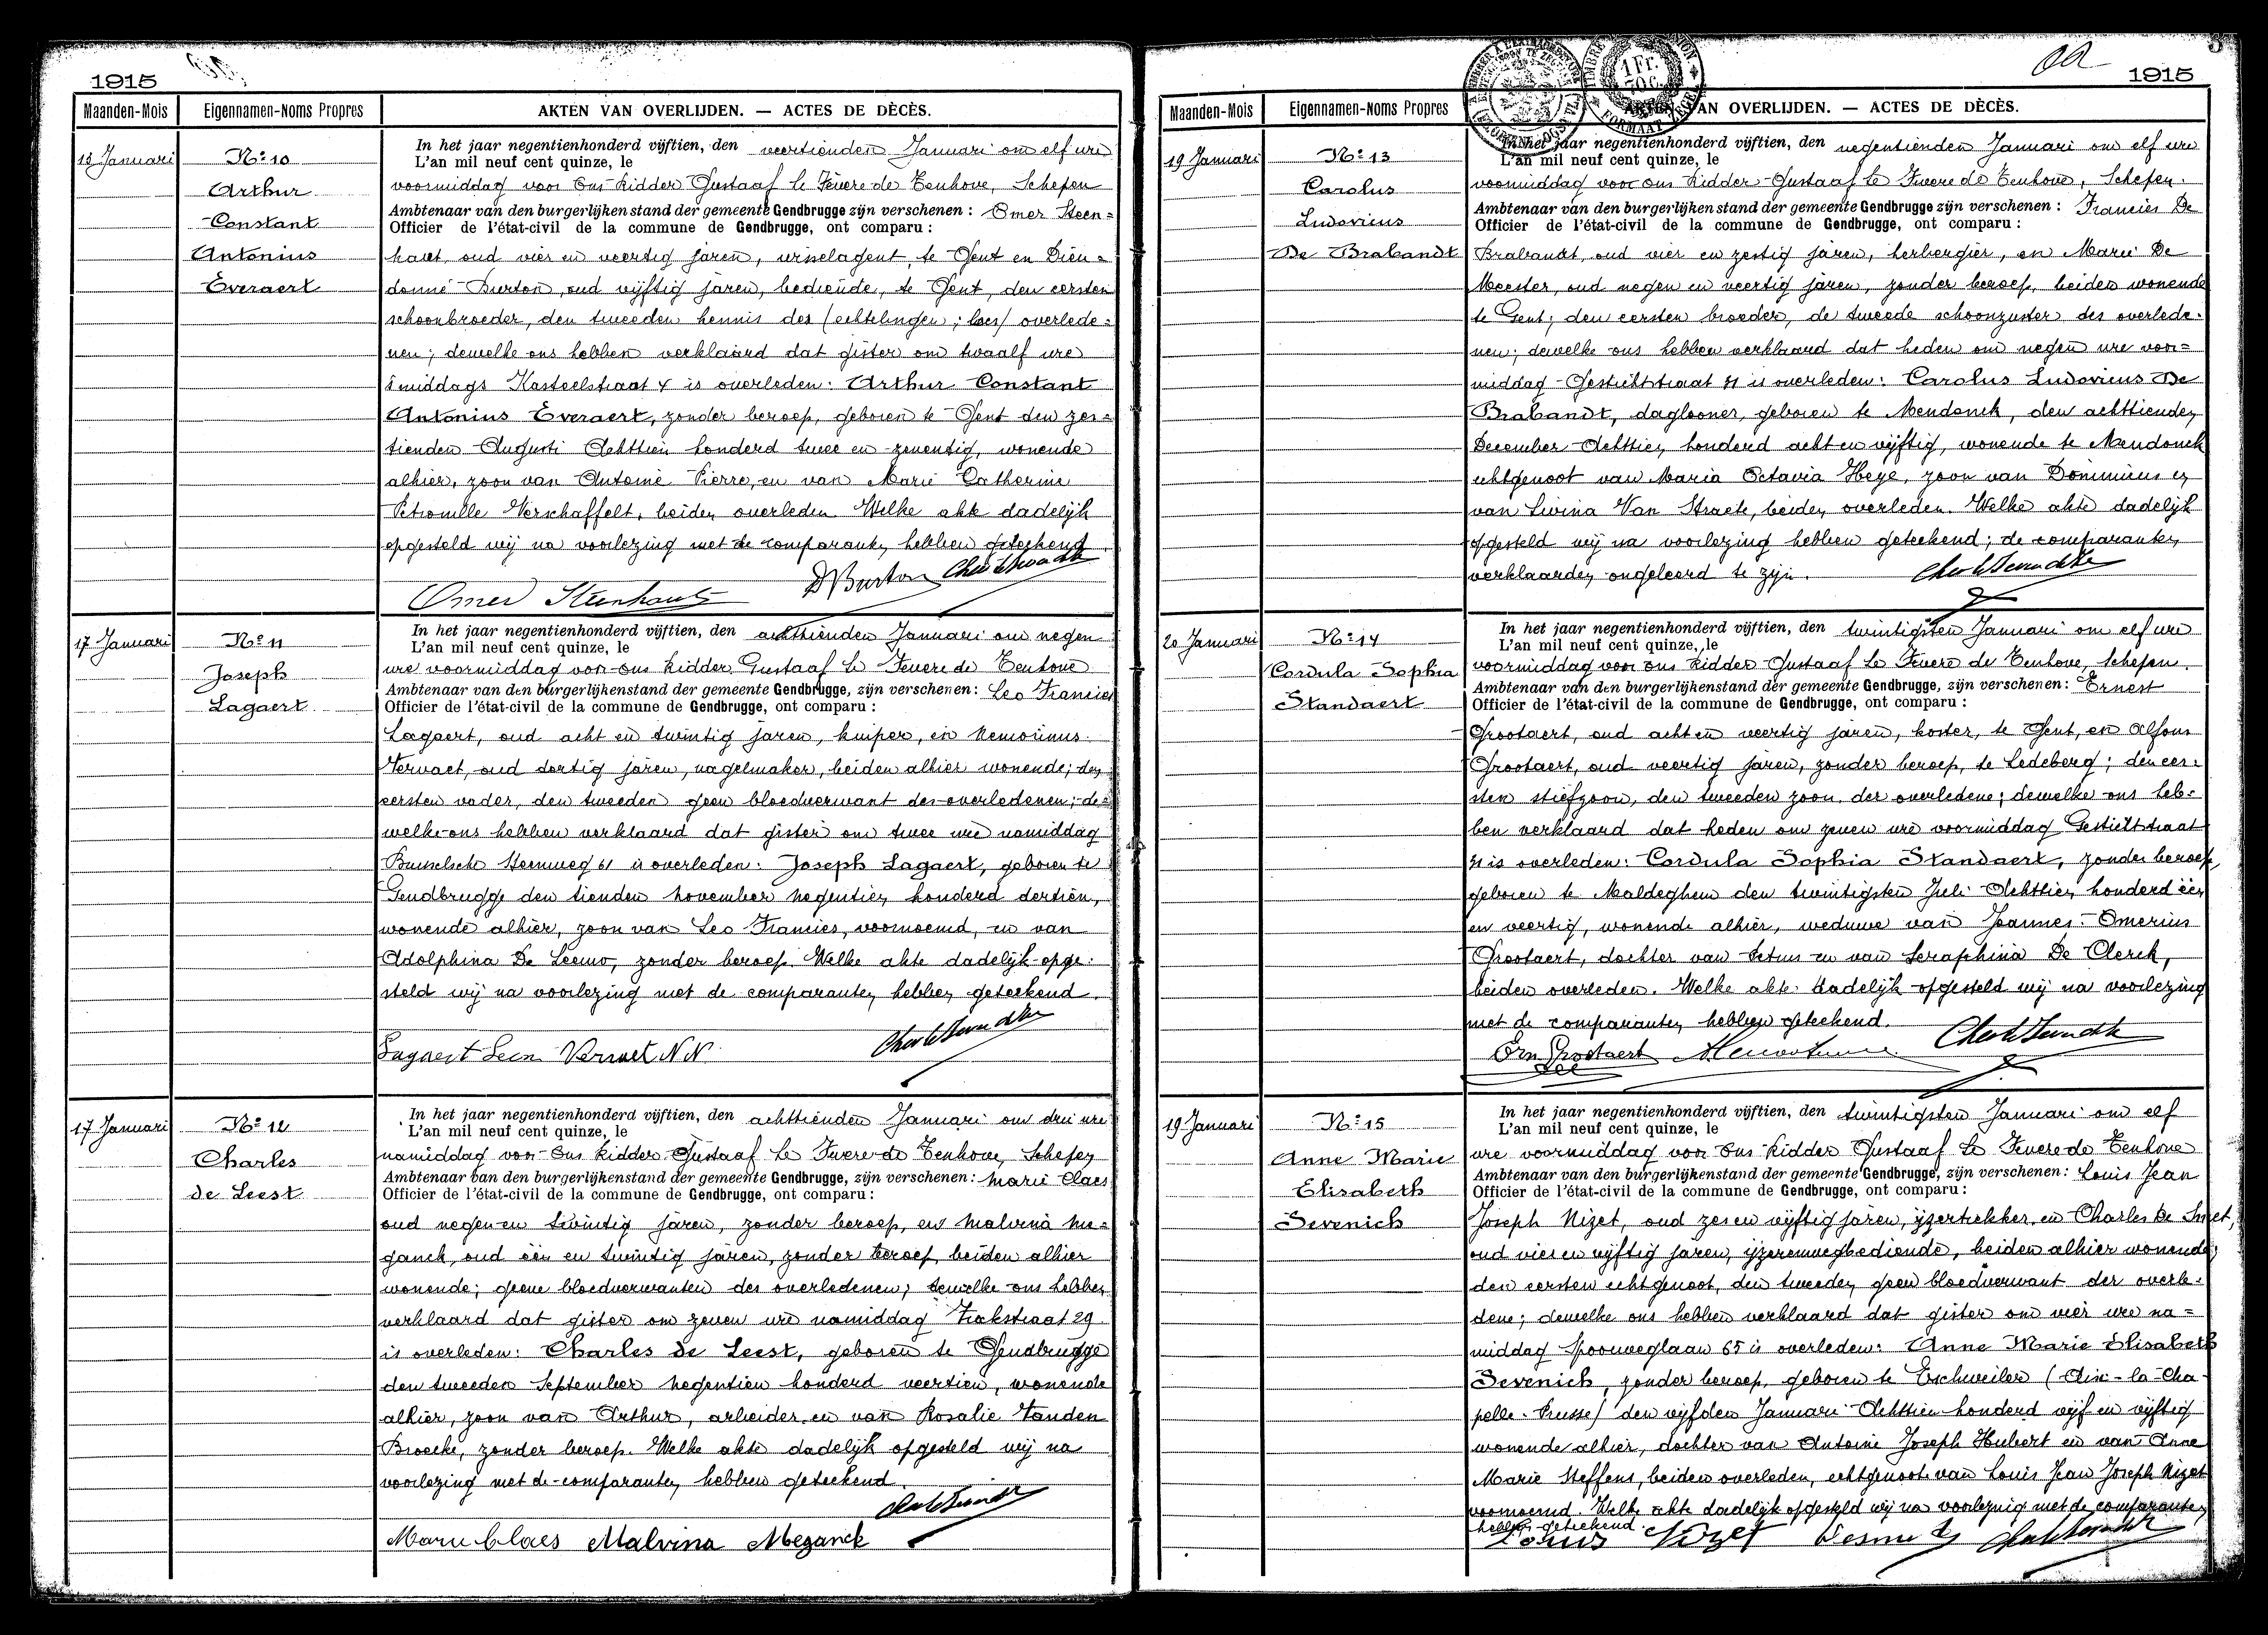 1915
Maanden-Mois Eigennamen-Noms Propres AKTEN VAN OVERLIJDEN. — ACTES DE DÉCÈS.
13 Januari
Nº 10
Arthur
Constant
Antonius
Everaert
In het jaar negentienhonderd vijftien, den veertienden Januari om elf ure
L'an mil neuf cent quinze, le
voormiddag voor Ons Ridder Gustaaf le Fevere de Tenhove, Schepen
Ambtenaar van den burgerlijken stand der gemeente Gendbrugge zijn verschenen : Omer Steen=
Officier de l'état-civil de la commune de Gendbrugge, ont comparu :
haut, oud vier en veertig jaren, wisselagent, te Gent en Dieu=
donné Burton, oud vijftig jaren, bediende, te Gent, den eersten
schoonbroeder, den tweeden kennis des (echtelingen; lees) overlede=
nen; dewelke ons hebben verklaard dat gister om twaalf ure
's middags Kasteelstraat 4 is overleden: Arthur Constant
Antonius Everaert, zonder beroep, geboren te Gent den zes=
tienden Augusti Achttien honderd twee en zeventig, wonende
alhier, zoon van Antoine Pierre, en van Marie Catherine
Petronille Verschaffelt, beiden overleden. Welke akte dadelijk
opgesteld wij na voorlezing met de comparanten hebben geteekend.
Omer Steenhaut DBurton
17 Januari
Nº 11
Joseph
Lagaert
In het jaar negentienhonderd vijftien, den achttienden Januari om negen
L'an mil neuf cent quinze, le
ure voormiddag voor ons Ridder Gustaaf le Fevere de Tenhove
Ambtenaar van den burgerlijkenstand der gemeente Gendbrugge, zijn verschenen : Leo Francies
Officier de l'état-civil de la commune de Gendbrugge, ont comparu :
Lagaert, oud acht en twintig jaren, kuiper, en
Vervaet, oud dertig jaren, nagelmaker, beiden alhier wonende; den
eersten vader, den tweeden geen bloedverwant des overledenen; de=
welke ons hebben verklaard dat gister om twee ure namiddag
Brusselsche Steenweg 61 is overleden: Joseph Lagaert, geboren te
Gendbrugge den tienden november negentien honderd dertien,
wonende alhier, zoon van Leo Francies, voornoemd, en van
Adolphina De Leeuw, zonder beroep. Welke akte dadelijk opge=
steld wij na voorlezing met de comparanten hebben geteekend.
Lagaert Leon Vervaet N.N.
17 Januari
Nº 12
Charles
de Leest
In het jaar negentienhonderd vijftien, den achttienden Januari om drie ure
L'an mil neuf cent quinze, le
namiddag voor Ons Ridder Gustaaf le Fevere de Tenhove, Schepen
Ambtenaar van den burgerlijkenstand der gemeente Gendbrugge, zijn verschenen : Marie Claes
Officier de l'état-civil de la commune de Gendbrugge, ont comparu :
oud negen en twintig jaren, zonder beroep, en Malvina Me=
ganck, oud één en twintig jaren, zonder beroep, beiden alhier
wonende; geene bloedverwanten des overledenen; dewelke ons hebben
verklaard dat gister om zeven ure namiddag 29
is overleden: Charles de Leest, geboren te Gendbrugge
den tweeden September negentien honderd veertien, wonende
alhier, zoon van Arthur, arbeider en van Rosalie Vanden
Broecke, zonder beroep. Welke akte dadelijk opgesteld wij na
voorlezing met de comparanten hebben geteekend.
Marie Claes Malvina Meganck
1915
Maanden-Mois Eigennamen-Noms Propres AKTEN VAN OVERLIJDEN. — ACTES DE DÉCÈS.
1 Fr.
50 C.
19 Januari
Nº 13
Carolus
Ludovicus
De Brabandt
In het jaar negentienhonderd vijftien, den negentienden Januari om elf ure
L'an mil neuf cent quinze, le
voormiddag voor ons Ridder Gustaaf le Fevere de Tenhove, Schepen.
Ambtenaar van den burgerlijken stand der gemeente Gendbrugge zijn verschenen : Francies De
Officier de l'état-civil de la commune de Gendbrugge, ont comparu :
Brabandt, oud vier en zestig jaren, herbergier, en Marie De
Meester, oud negen en veertig jaren, zonder beroep, beiden wonende
te Gent; den eersten broeder, de tweede schoonzuster des overlede=
nen; dewelke ons hebben verklaard dat heden om negen ure voor=
middag Gestichtstraat 31 is overleden: Carolus Ludovicus De
Brabandt, daglooner, geboren te Mendonck, den achttienden
December Achttien honderd acht en vijftig, wonende te Mendonck
echtgenoot van Maria Octavia Heye, zoon van Dominicus en
van Livina Van Straete, beiden overleden. Welke akte dadelijk
opgesteld wij na voorlezing hebben geteekend; de comparanten
verklaarden ongeleerd te zijn.
20 Januari
Nº 14
Cordula Sophia
Standaert
In het jaar negentienhonderd vijftien, den twintigsten Januari om elf ure
L'an mil neuf cent quinze, le
voormiddag voor ons Ridder Gustaaf Le Fevere de Tenhove, Schepen.
Ambtenaar van den burgerlijkenstand der gemeente Gendbrugge, zijn verschenen : Ernest
Officier de l'état-civil de la commune de Gendbrugge, ont comparu :
Grootaert, oud acht en veertig jaren, koster, te Gent, en Alfons
Grootaert, oud veertig jaren, zonder beroep, te Ledeberg; den eer=
sten stiefzoon, den tweeden zoon der overledene; dewelke ons heb=
ben verklaard dat heden om zeven ure voormiddag Gestichtstraat
31 is overleden: Cordula Sophia Standaert, zonder beroep,
geboren te Maldeghem den twintigsten Juli Achttien honderd één
en veertig, wonende alhier, weduwe van Joannes Omerius
Grootaert, dochter van Petrus en van Seraphina De Clerck,
beiden overleden. Welke akte dadelijk opgesteld wij na voorlezing
met de comparanten hebben geteekend.
Ern Grootaert
19 Januari
Nº 15
Anne Marie
Elisabeth
Sevenich
In het jaar negentienhonderd vijftien, den twintigsten Januari om elf
L'an mil neuf cent quinze, le
ure voormiddag voor Ons Ridder Gustaaf Le Fevere de Tenhove
Ambtenaar van den burgerlijkenstand der gemeente Gendbrugge, zijn verschenen : Louis Jean
Officier de l'état-civil de la commune de Gendbrugge, ont comparu :
Joseph Nizet, oud zes en vijftig jaren, ijzertrekker, en Charles De Smet,
oud vier en vijftig jaren, ijzerenwegbediende, beiden alhier wonende;
den eersten echtgenoot, den tweeden geen bloedverwant der overle=
dene; dewelke ons hebben verklaard dat gister om vier ure na=
middag Spoorweglaan 65 is overleden: Anne Marie Elisabeth
Sevenich, zonder beroep, geboren te Eschweiler (Aix-la-Cha=
pelle. Prusse) den vijfden Januari Achttien honderd vijf en vijftig
wonende alhier, dochter van Antoine Joseph Hubert en van Anne
Marie Steffens, beiden overleden, echtgenoote van Louis Jean Joseph Nizet
voornoemd. Welke akte dadelijk opgesteld wij na voorlezing met de comparanten
hebben geteekend.
Louis Nizet Desmet